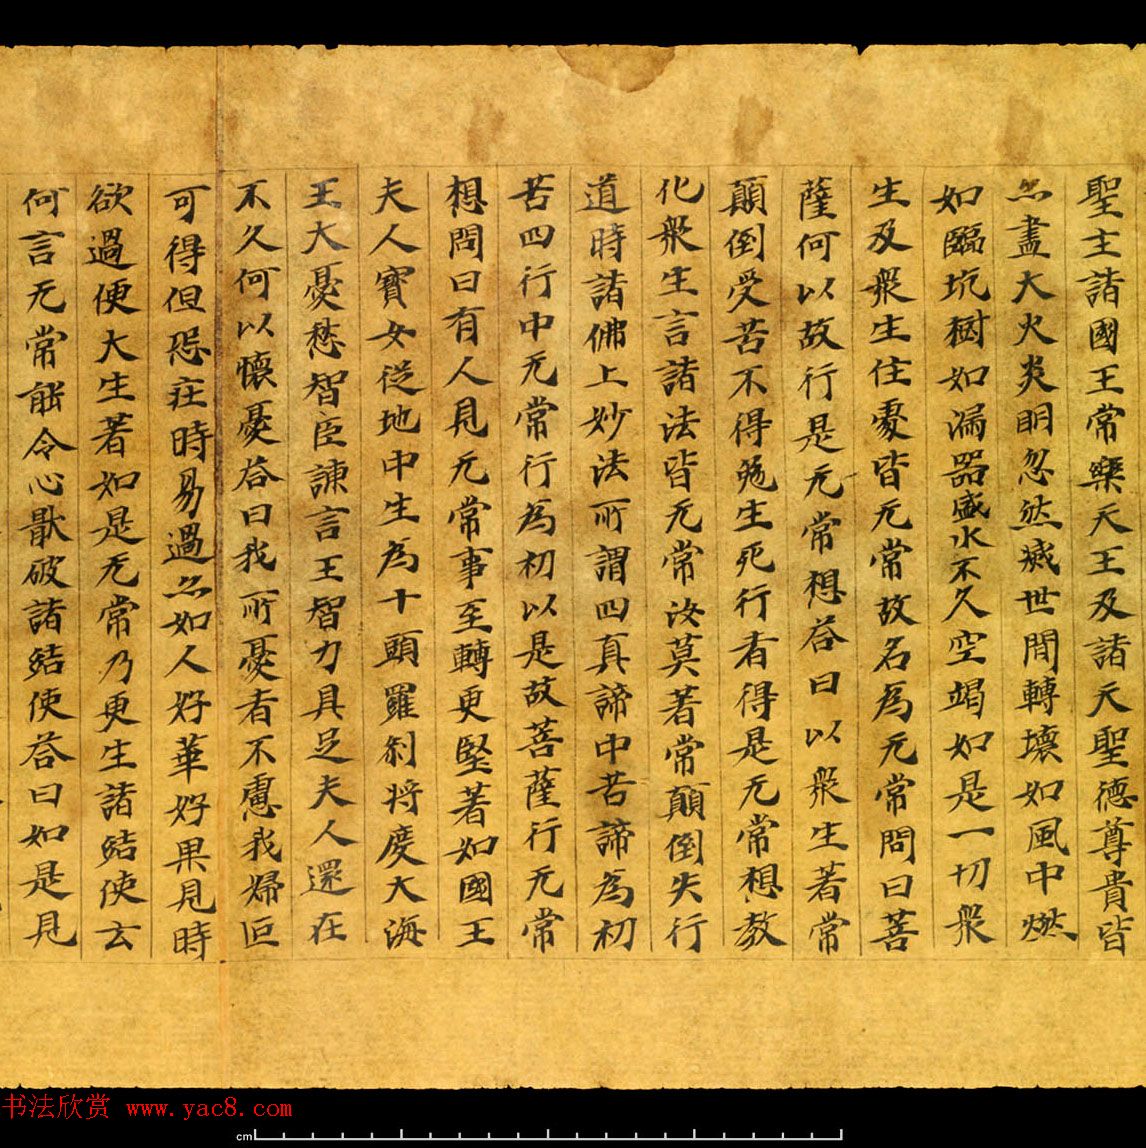 聖主諸國王常樂天王及諸天聖德尊貴皆
亦盡大火炎明忽然滅世間轉壞如風中燃
如臨坑樹如漏器盛水不久空竭如是一切衆
生及衆生住處皆无常故名為无常問曰菩
薩何以故行是无常想荅曰以衆生著常
顛倒受苦不得免生死行者得是无常想教
化衆生言諸法皆无常汝莫著常顛倒失行
道時諸佛上妙法所謂四真諦中苦諦為初
苦四行中无常行為初以是故菩薩行无常
想問曰有人見无常事至轉更堅著如國王
夫人寶女從地中生為十頭羅剎將度大海
王大憂愁智臣諫言王智力具足夫人還在
不久何以懷憂荅曰我所憂者不慮我婦叵
可得但恐壯時易過亦如人好華好果見時
欲過便大生著如是无常乃更生諸結使云
何言无常能令心猒破諸結使荅曰如是見
书法欣赏 www.yac8.com
cm